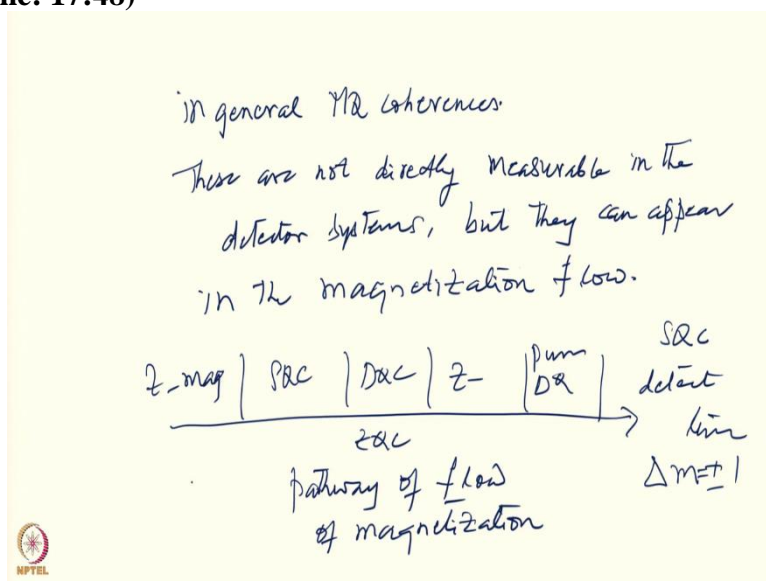 in general MQ coherences.
These are not directly measurable in the
detector systems, but they can appear
in the magnetization flow.
Z-mag | SQC | DQC | Z- | DQ | SQC
detect
ZQC
Δm=±1
pathway of flow
of magnetization
NPTEL